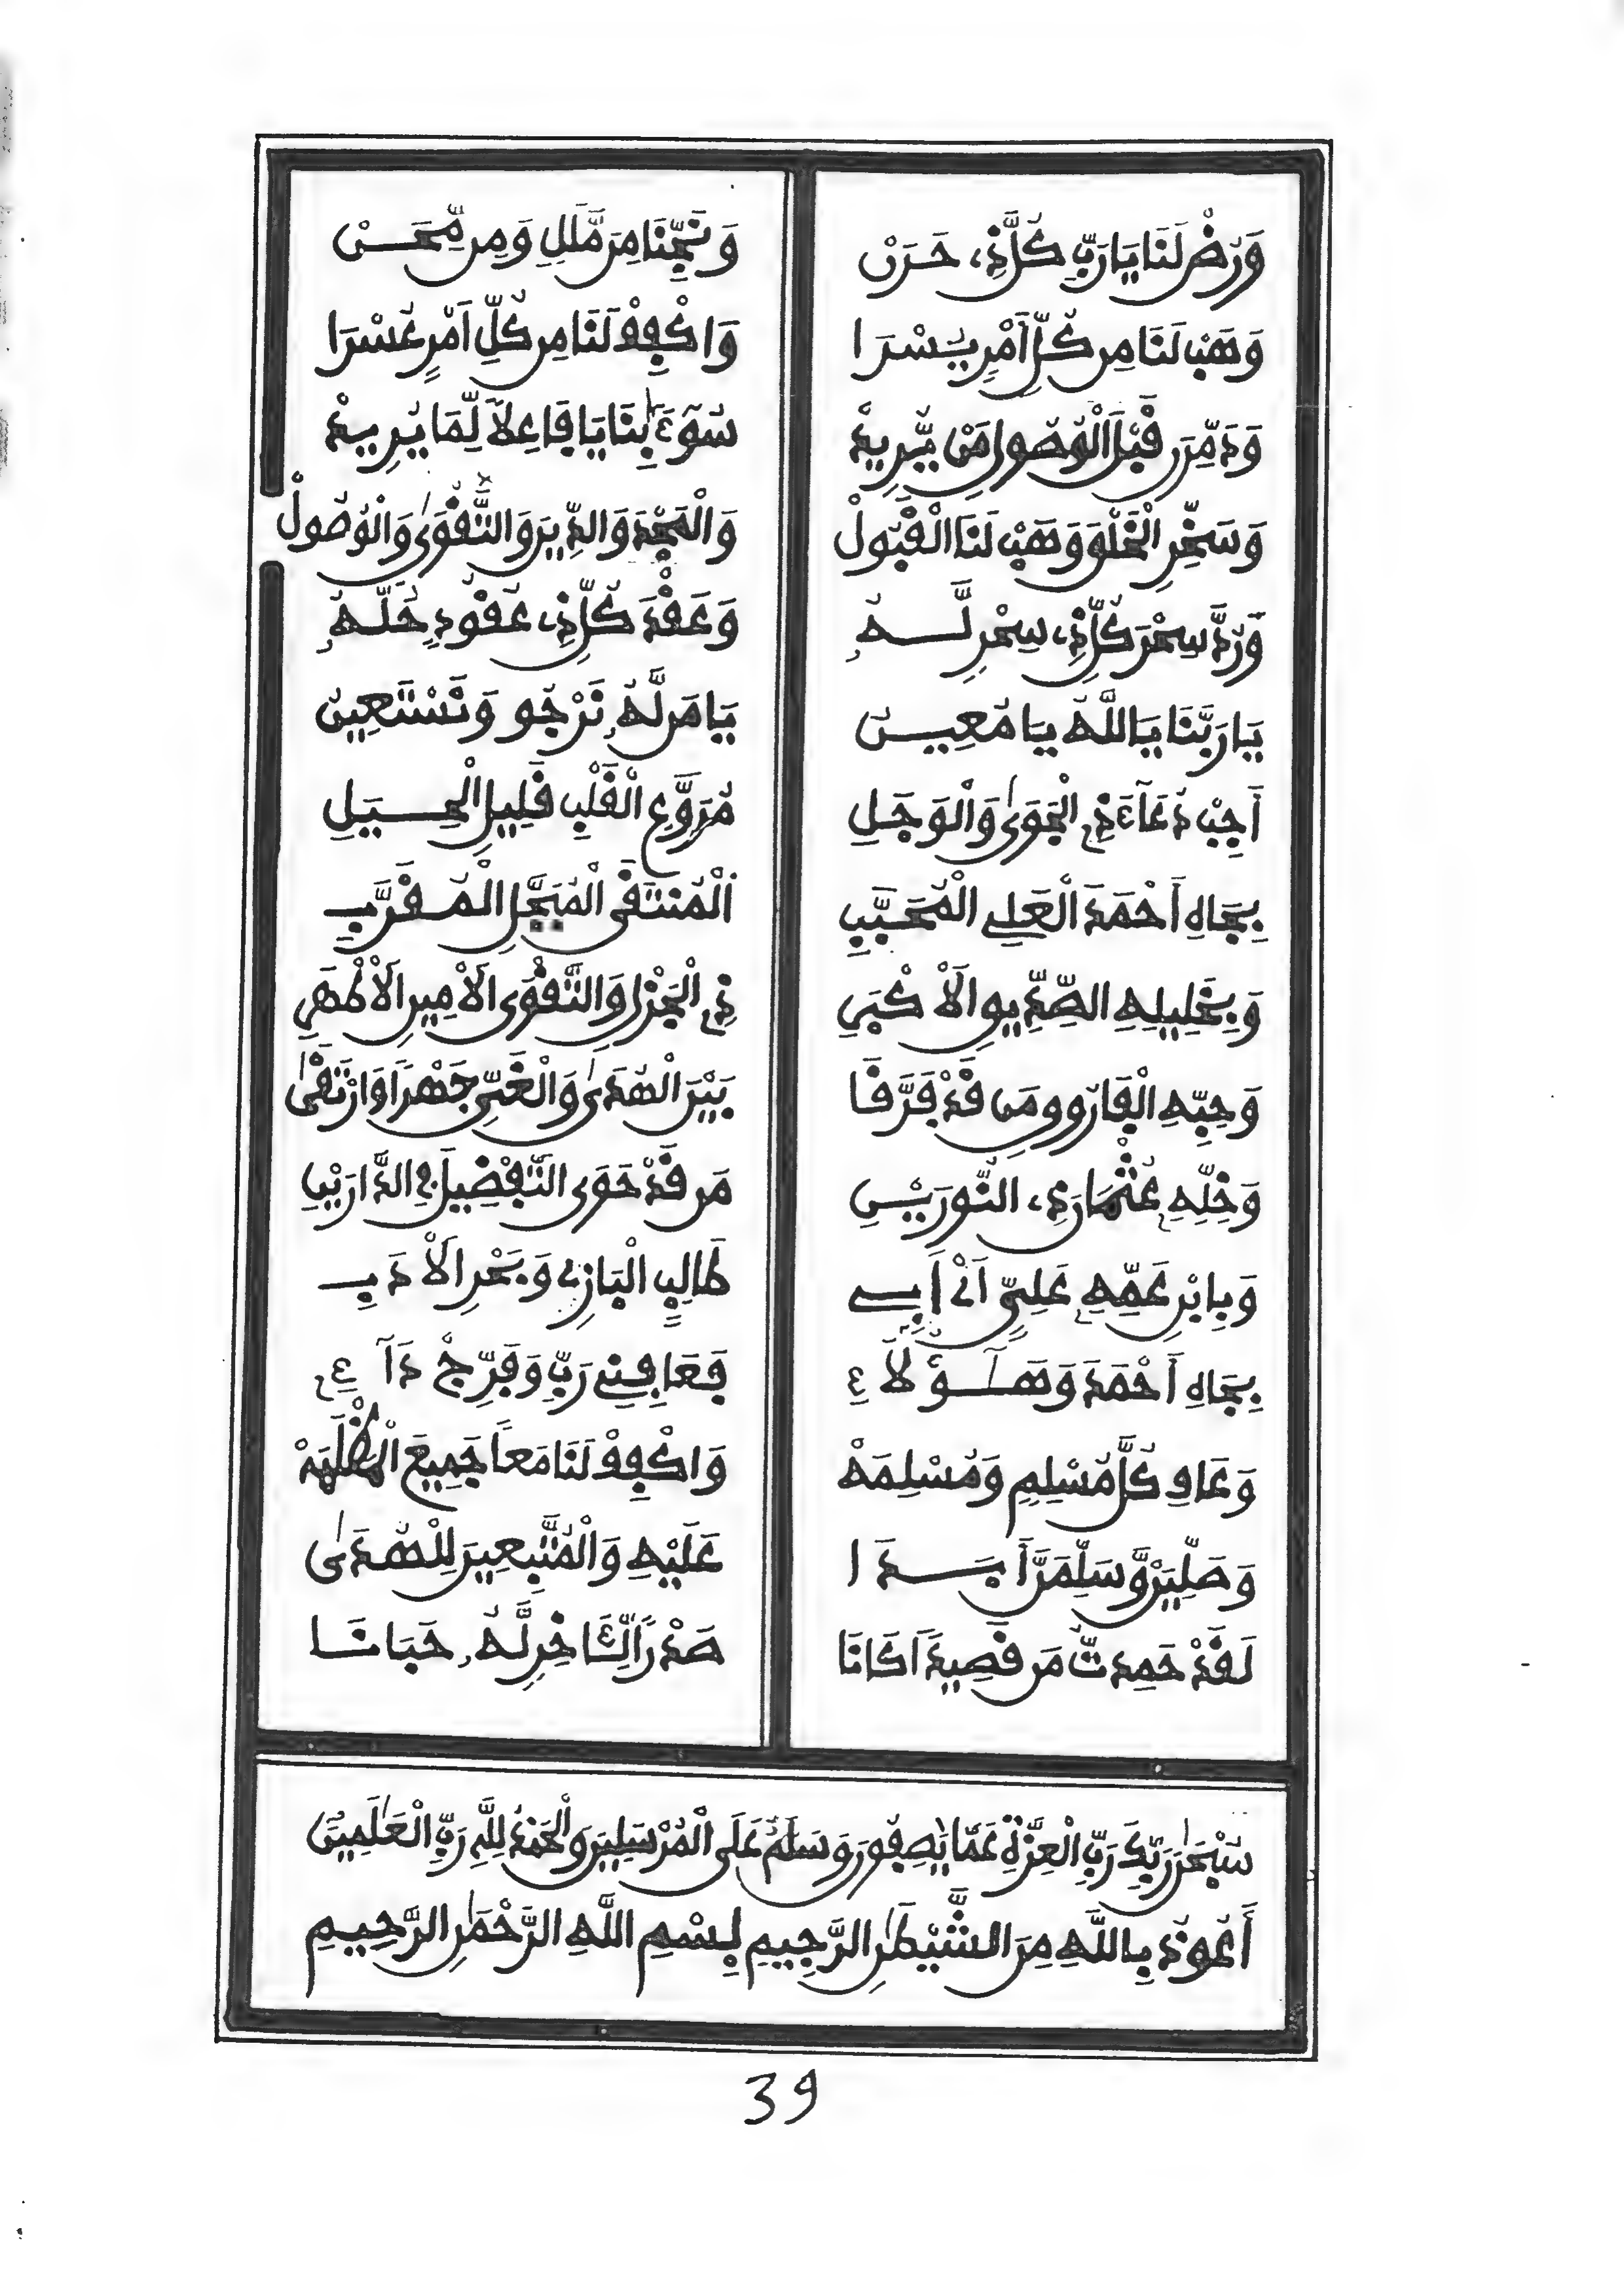 وَرُضْ لَنَا يَا رَبِّ كُلَّ ذِے حَرَنْ وَنَجِّنَا مِن مَّلَلٍ وَمِن مِّحَنْ
وَهَبْ لَنَا مِن كُلِّ أَمْرٍ يُسْرَا وَاكْفِ لَنَا مِن كُلِّ أَمْرٍ عُسْرَا
وَدَمِّرَن قَبْلَ الْوُصُولِ مَنْ يُّرِيدْ سُوٓءًا بِنَا يَا فَاعِلًا لِّمَا يُرِيدْ
وَسَخِّرِ الْخَلْقَ وَهَبْ لَنَا الْقَبُولْ وَالْمَجْدَ وَالدِّينَ وَالتَّقْوَىٰ وَالْوُصُولْ
وَرُدَّ سِحْرَ كُلِّ ذِے سِحْرٍ لَّهُ وَعَقْدَ كُلِّ ذِے عُقُودٍ حُلَّهُ
يَا رَبَّنَا يَا اللَّهُ يَا مُعِينُ يَا مَن لَّهُ نَرْجُو وَنَسْتَعِينُ
أَجِبْ دُعَآءَ ذِے الْجَوَىٰ وَالْوَجَلِ مُرَوَّعِ الْقَلْبِ قَلِيلِ الْحِيَلِ
بِجَاهِ أَحْمَدَ الْعَلِے الْمُحَبَّبِ الْمُنتَقَى الْمُبَجَّلِ الْمُقَرَّبِ
وَبِخَلِيلِهِ الصِّدِّيقِ الْأَكْبَرِ ذِے الْجَزْلِ وَالتَّقْوَى الْأَمِينِ الْأَطْهَرِ
وَحِبِّهِ الْفَارُوقِ مَن قَدْ فَرَّقَا بَيْنَ الْهُدَىٰ وَالْغَيِّ جَهْرًا وَارْتَقَىٰ
وَخِلِّهِ عُثْمَانَ ذِے النُّورَيْنِ مَن قَدْ حَوَى التَّفْضِيلَ فِے الدَّارَيْنِ
وَبِابْنِ عَمِّهِ عَلِيٍّ اَنْ أَبِے طَالِبٍ الْبَازِے وَبَحْرِ الْأَدَبِ
بِجَاهِ أَحْمَدَ وَهَٰؤُلَآءِ فَعَافِنِے رَبِّ وَفَرِّجْ دَآءِ
وَعَافِ كُلَّ مُسْلِمٍ وَمُسْلِمَهْ وَاكْفِ لَنَا مَعًا جَمِيعَ الظَّلَمَهْ
وَصَلِّيَنْ وَسَلِّمَنَّ أَبَدَا عَلَيْهِ وَالْمُتَّبِعِينَ لِلْهُدَىٰ
لَقَدْ حَمِدتُّ مَن قَصِيدًا كَانَا صَدْرًا لِّئَاخِرٍ لَّهُ حَبَانَا
سُبْحَٰنَ رَبِّكَ رَبِّ الْعِزَّةِ عَمَّا يَصِفُونَ وَسَلَٰمٌ عَلَى الْمُرْسَلِينَ وَالْحَمْدُ لِلَّهِ رَبِّ الْعَٰلَمِينَ
أَعُوذُ بِاللَّهِ مِنَ الشَّيْطَٰنِ الرَّجِيمِ بِسْمِ اللَّهِ الرَّحْمَٰنِ الرَّحِيمِ
39